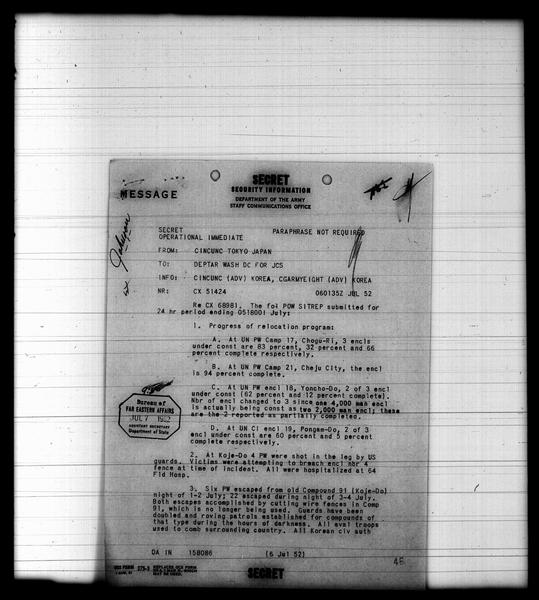 SECRET
SECURITY INFORMATION
DEPARTMENT OF THE ARMY
STAFF COMMUNICATIONS OFFICE
MESSAGE
SECRET
OPERATIONAL IMMEDIATE
PARAPHRASE NOT REQUIRED
FROM: CINCUNC TOKYO JAPAN
TO: DEPTAR WASH DC FOR JCS
INFO: CINCUNC (ADV) KOREA, CGARMYEIGHT (ADV) KOREA
NR: CX 51424 060135Z JUL 52
Re CX 68981. The fol POW SITREP submitted for
24 hr period ending 051800I July:
1. Progress of relocation program:
A. At UN PW Camp 17, Chogu-Ri, 3 encls
under const are 83 percent, 32 percent and 66
percent complete respectively.
B. At UN PW Camp 21, Cheju City, the encl
is 94 percent complete.
C. At UN PW encl 18, Yoncho-Do, 2 of 3 encl
under const (62 percent and 12 percent complete).
Nbr of encl changed to 3 since one 4,000 man encl
is actually being const as two 2,000 man encl; these
are the 2 reported as partially completed.
D. At UN CI encl 19, Pongam-Do, 2 of 3
encl under const are 60 percent and 5 percent
complete respectively.
2. At Koje-Do 4 PW were shot in the leg by US
guards. Victims were attempting to breach encl nbr 4
fence at time of incident. All were hospitalized at 64
Fld Hosp.
3. Six PW escaped from old Compound 91 (Koje-Do)
night of 1-2 July; 22 escaped during night of 3-4 July.
Both escapes accomplished by cutting wire fences in Comp
91, which is no longer being used. Guards have been
doubled and roving patrols established for compounds of
that type during the hours of darkness. All avail troops
used to comb surrounding country. All Korean civ auth
Bureau of
FAR EASTERN AFFAIRS
JUL 7 1952
ASSISTANT SECRETARY
Department of State
DA IN 158086 (6 Jul 52)
46
OCS FORM 375-3
SECRET